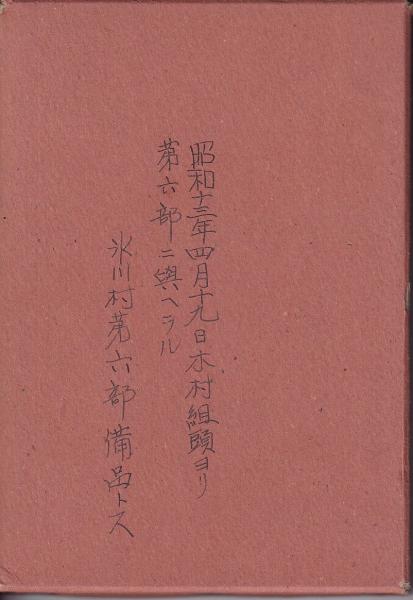 昭和十三年四月十九日木村組頭ヨリ
第六部ニ與ヘラル
氷川村第六部備品トス